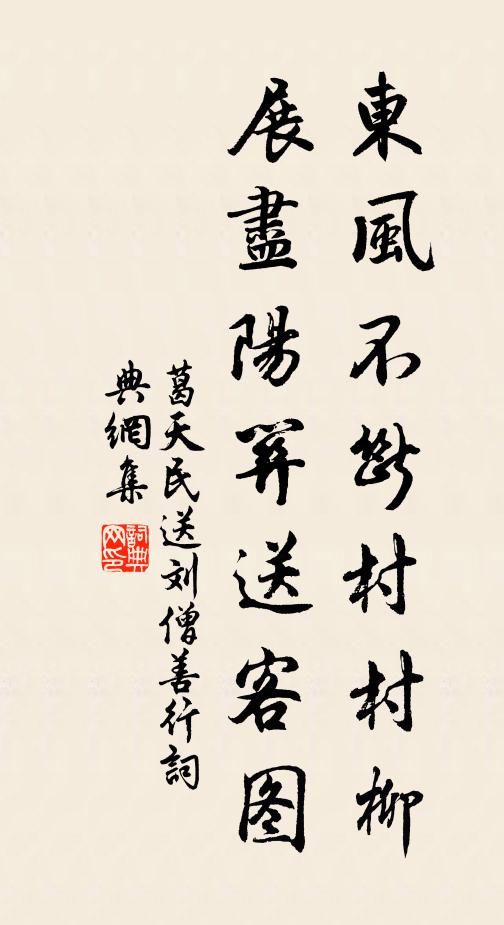 東風不斷村村柳
展盡陽關送客图
葛天民送刘僧善行詞
典網集
詞典網印